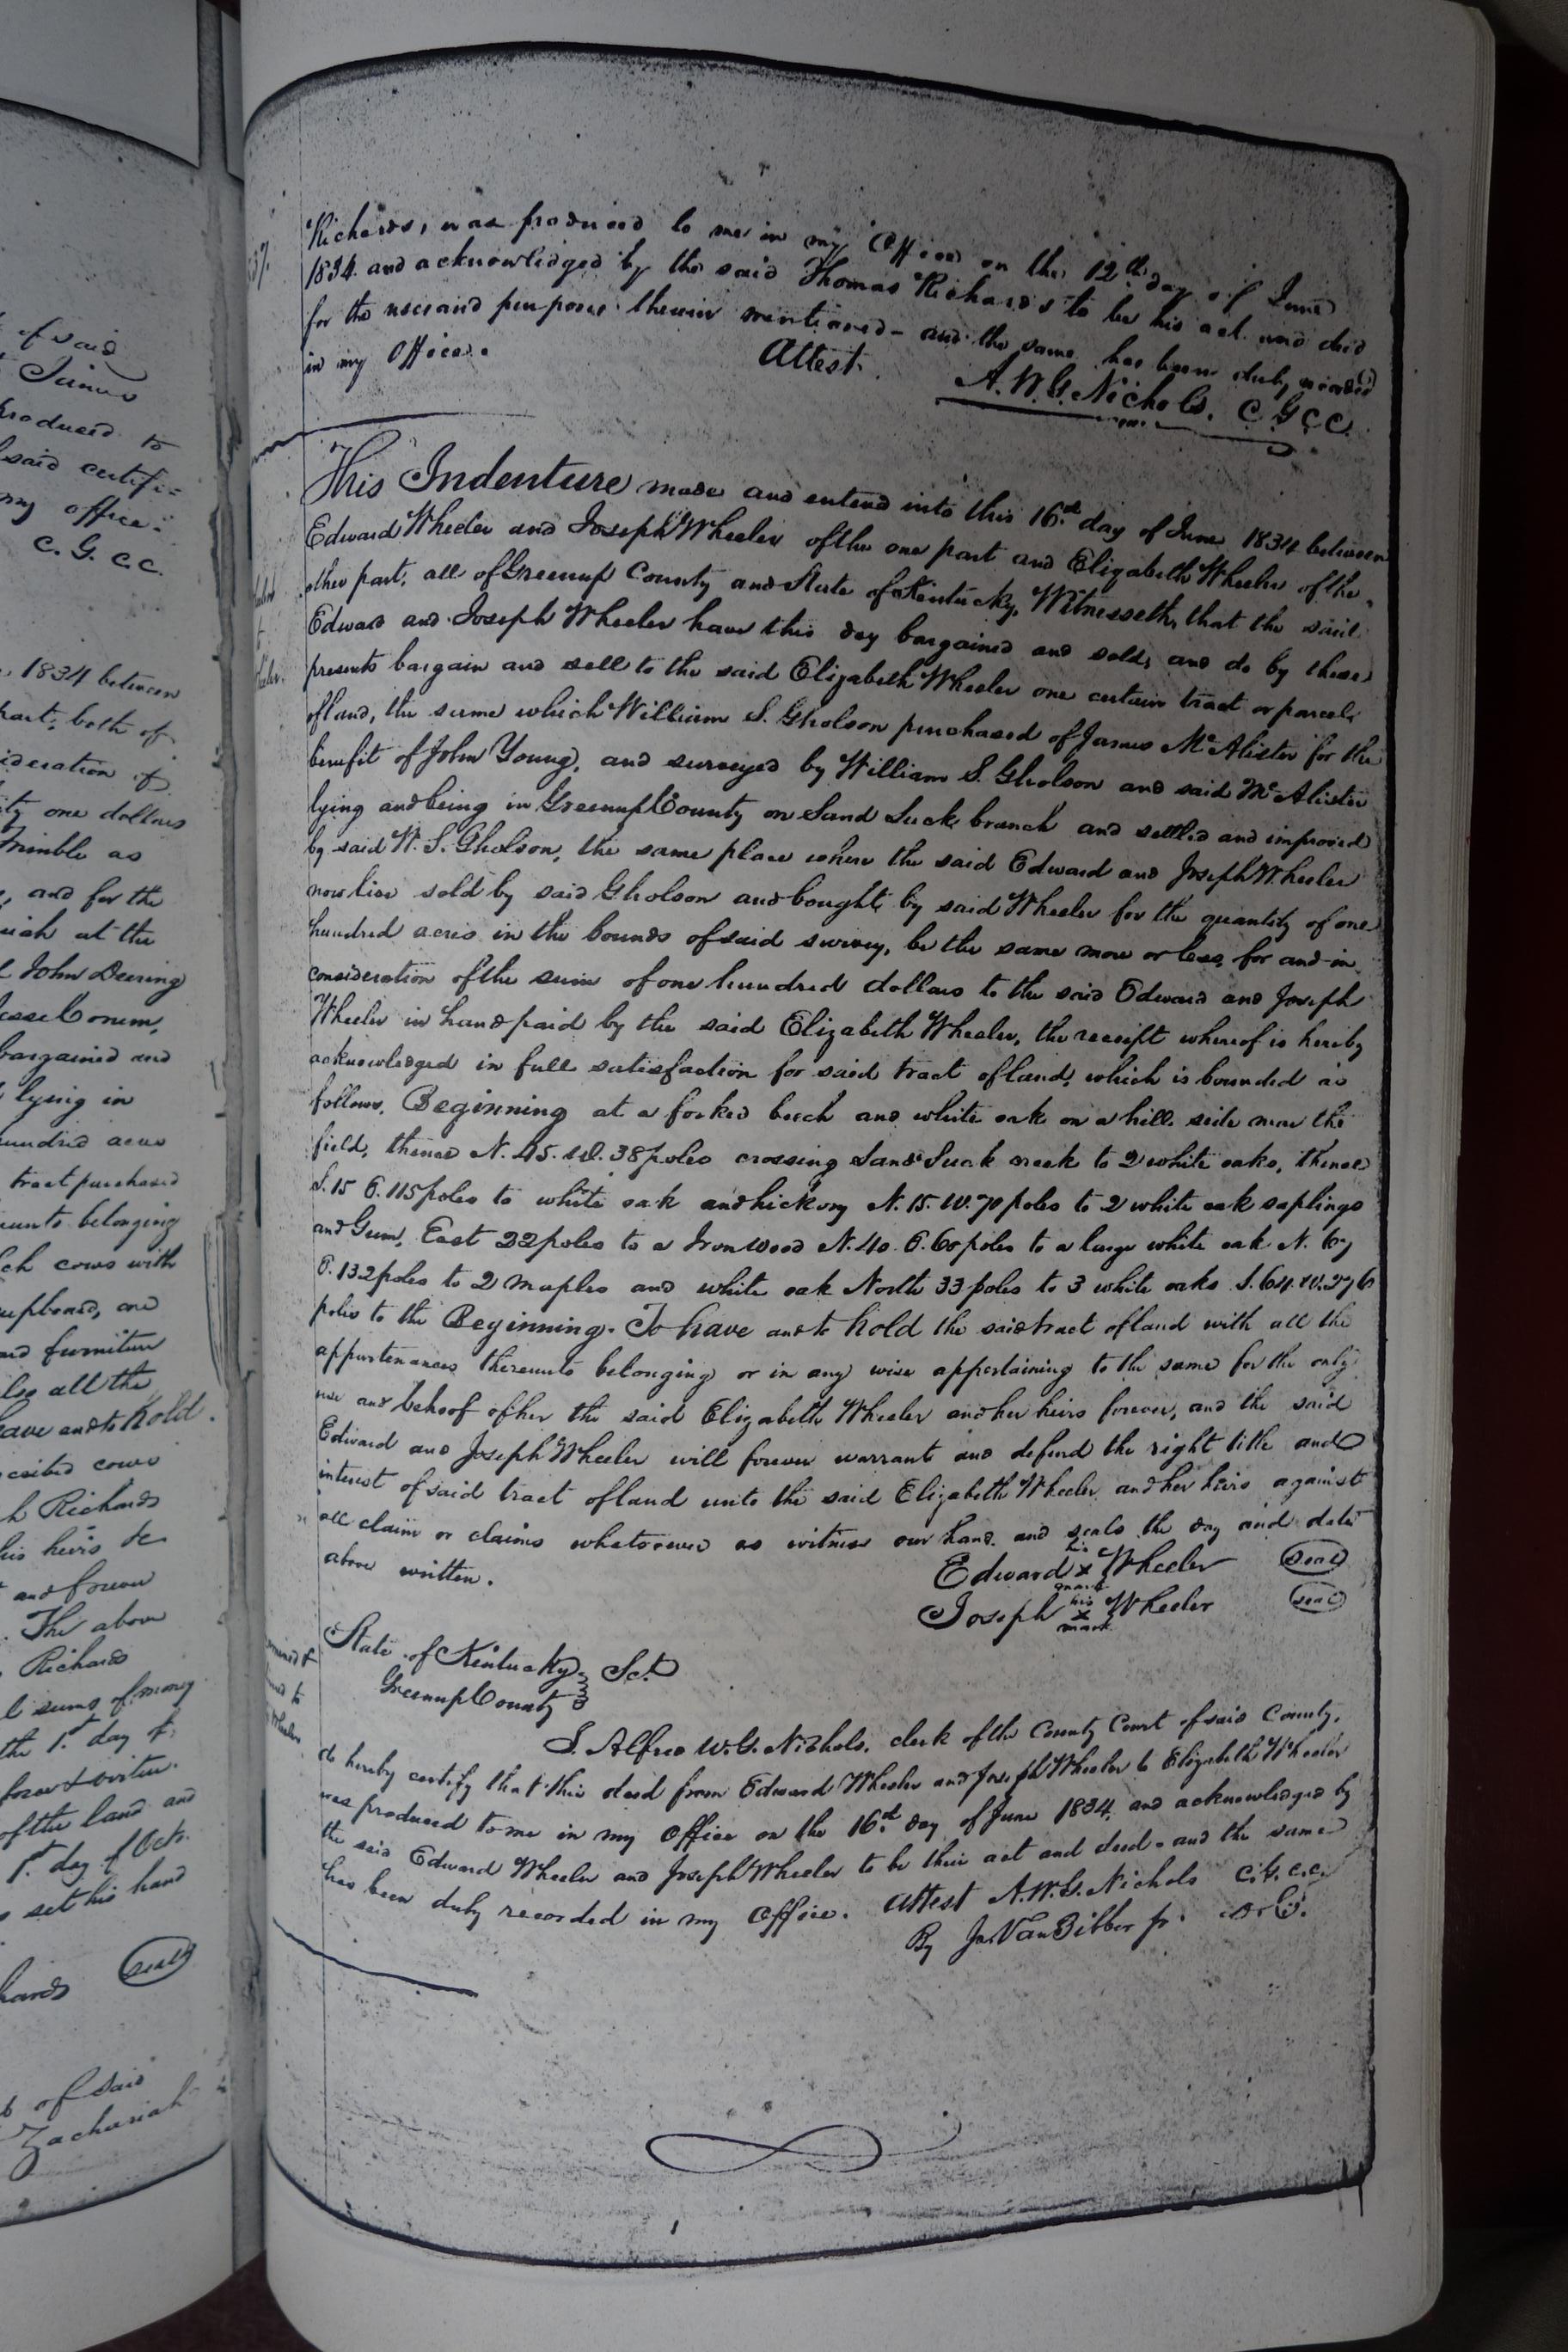 of said
James
produced to
said certifi=
my office.
C. G. C. C.
1834 between
part, both of
ideration of
ty one dollars
Trimble as
, and for the
at the
John Deering
Jesse Conem,
bargained and
lying in
hundred acres
tract purchased
belonging
ch cows with
cupboard, one
and furniture
also all the
have and to hold
cows
h Richards
his heirs &c
and forever
The above
Richards
l sums of money
the 1st day of
of the land and
1st day of Oct.
set his hand
Seal
of said
Zachariah
Richards, was produced to me in my Office on the 12th day of June
1834 and acknowledged by the said Thomas Richards to be his act and deed
for the uses and purposes therein mentioned - and the same has been duly recorded
in my Office. Attest. A. W. G. Nichols. C. G. C. C.
This Indenture made and entend into this 16th day of June 1834 between
Edward Wheeler and Joseph Wheeler of the one part and Elizabeth Wheeler of the
other part, all of Greenup County and State of Kentucky, Witnesseth, that the said
Edward and Joseph Wheeler have this day bargained and sold, and do by these
presents bargain and sell to the said Elizabeth Wheeler one certain tract or parcel
of land, the same which William S. Gholson purchased of James McAlister for the
benefit of John Young, and surveyed by William S. Gholson and said McAlister
lying and being in Greenup County on Sand Suck branch and settled and improved
by said W. S. Gholson, the same place where the said Edward and Joseph Wheeler
now live sold by said Gholson and bought by said Wheeler for the quantity of one
hundred acres in the bounds of said survey, be the same more or less, for and in
consideration of the sum of one hundred dollars to the said Edward and Joseph
Wheeler in hand paid by the said Elizabeth Wheeler, the receipt whereof is hereby
acknowledged in full satisfaction for said tract of land, which is bounded as
follows, Beginning at a forked beech and white oak on a hill side near the
field, thence N. 45. W. 38 poles crossing Sand Suck creek to 2 white oaks, thence
S. 15 E. 115 poles to white oak and hickory N. 15. W. 70 poles to 2 white oak saplings
and Gum, East 22 poles to a Iron wood N. 40. E. 60 poles to a large white oak N. 67
E. 132 poles to 2 maples and white oak North 33 poles to 3 white oaks S. 64. W. 276
poles to the Beginning. To have and to hold the said tract of land with all the
appurtenances thereunto belonging or in any wise appertaining to the same for the only
use and behoof of her the said Elizabeth Wheeler and her heirs forever, and the said
Edward and Joseph Wheeler will forever warrant and defend the right title and
interest of said tract of land unto the said Elizabeth Wheeler and her heirs against
all claim or claims whatsoever as witness our hand and seals the day and date
above written.
Edward his x mark Wheeler Seal
Joseph his x mark Wheeler Seal
State of Kentucky Sct.
Greenup County
I. Alfred W. G. Nichols, clerk of the County Court of said County,
do hereby certify that this deed from Edward Wheeler and Joseph Wheeler to Elizabeth Wheeler
was produced to me in my Office on the 16th day of June 1834, and acknowledged by
the said Edward Wheeler and Joseph Wheeler to be their act and deed - and the same
has been duly recorded in my Office. Attest A. W. G. Nichols C. G. C. C.
By Jas. VanBibber jr. D. C.